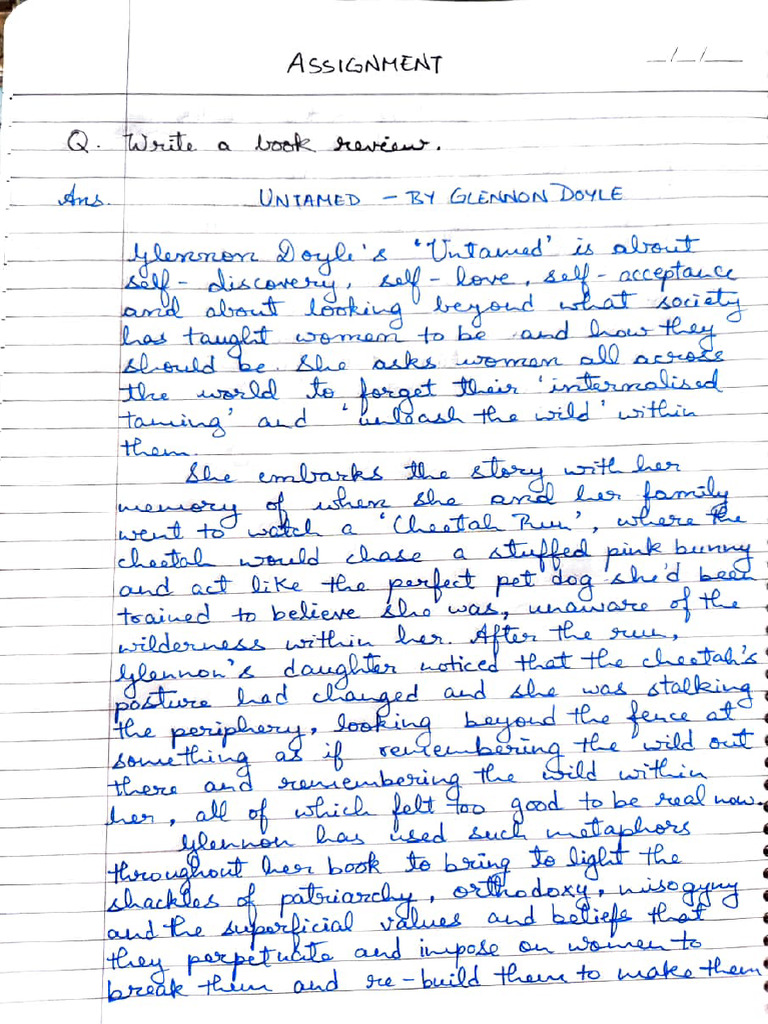 ASSIGNMENT
_/_/__
Q. Write a book review.
Ans. UNTAMED - BY GLENNON DOYLE
Glennon Doyle's 'Untamed' is about
self-discovery, self-love, self-acceptance
and about looking beyond what society
has taught women to be and how they
should be. She asks women all across
the world to forget their 'internalised
taming' and 'unleash the wild' within
them.
She embarks the story with her
memory of when she and her family
went to watch a 'Cheetah Run', where the
cheetah would chase a stuffed pink bunny
and act like the perfect pet dog she'd been
trained to believe she was, unaware of the
wilderness within her. After the run,
Glennon's daughter noticed that the cheetah's
posture had changed and she was stalking
the periphery, looking beyond the fence at
something as if remembering the wild out
there and remembering the wild within
her, all of which felt too good to be real now.
Glennon has used such metaphors
throughout her book to bring to light the
shackles of patriarchy, orthodoxy, misogyny
and the superficial values and beliefs that
they perpetuate and impose on women to
break them and re-build them to make them